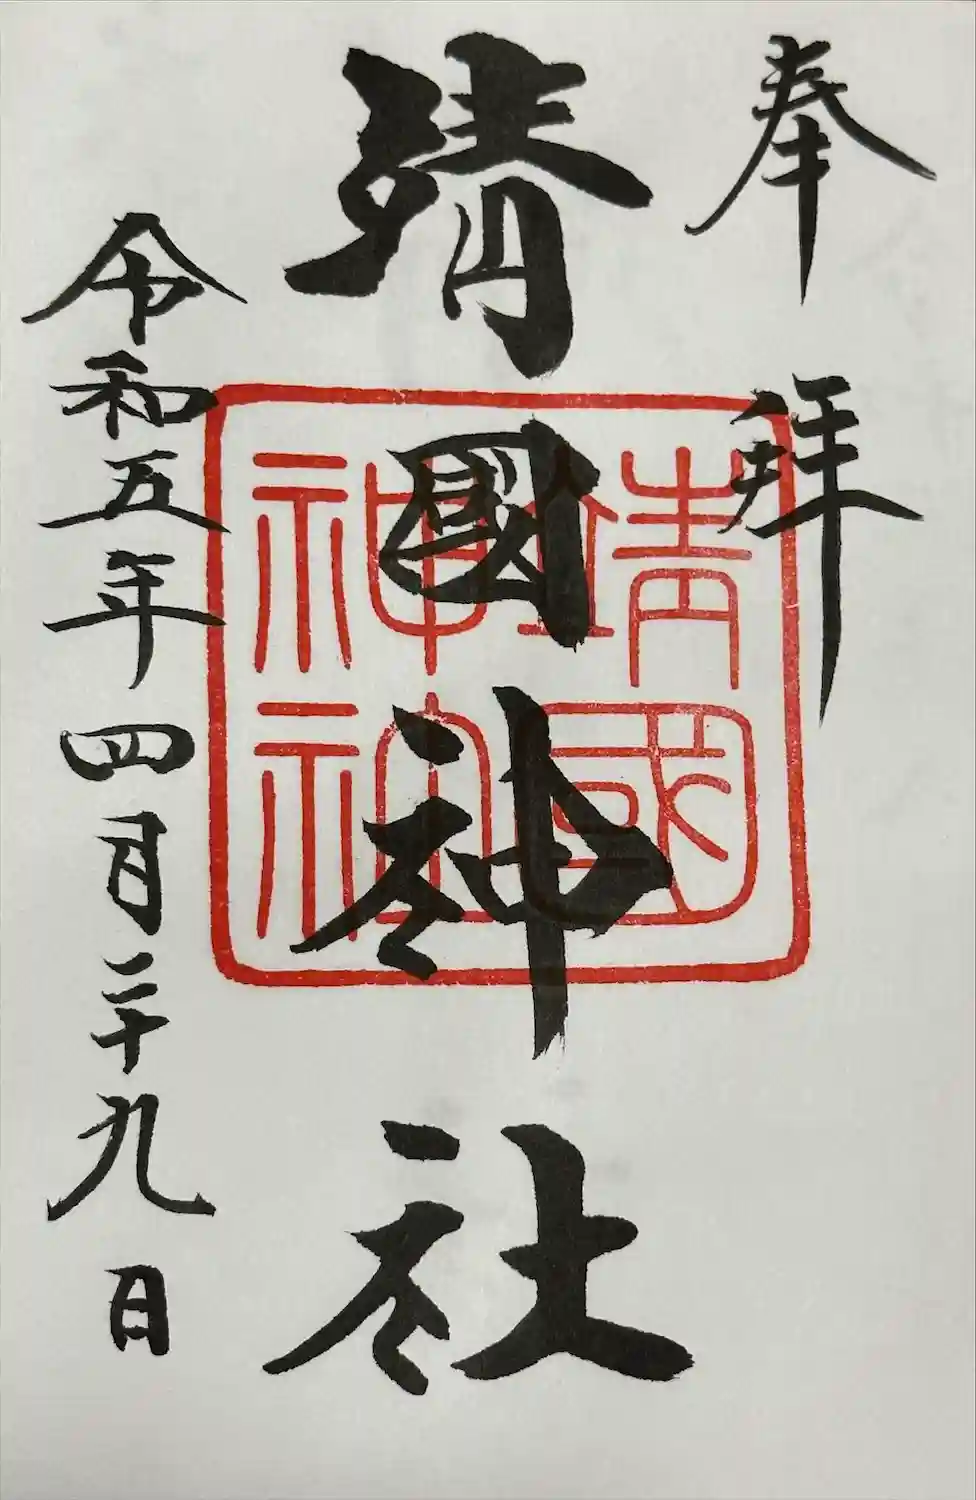 奉拝
靖國神社
靖國
神社
令和五年四月二十九日